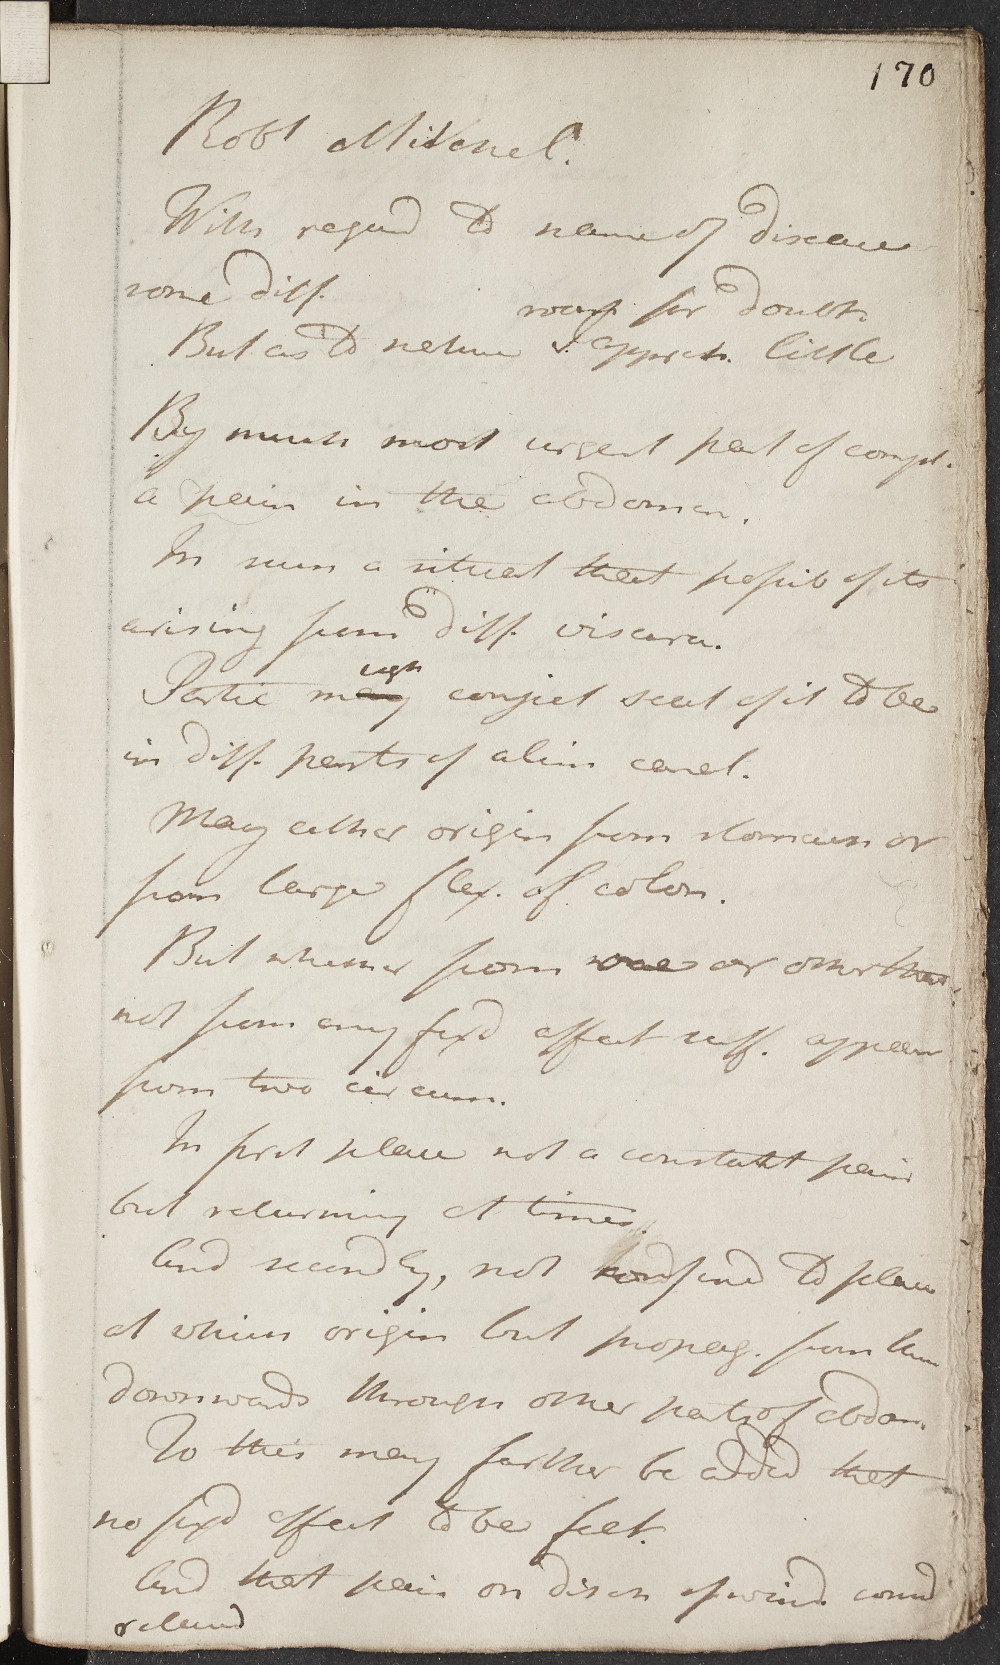 170
Robt Mitchel.
With regard to name of disease
some diff.
room for doubt
But as to nature & apprch. little
By much most urgent part of compt.
a pain in the abdomen.
In such a situat that possib of its
arising from diff. viscera.
Partic might conject seat of it to be
in diff. parts of alim canal.
May either origin from stomach or
from large flex. of colon.
But whether from one or other that
not from any fixd affect suff. appear
from two circum.
In first place not a constant pain
but returning at times.
And secondly, not confind to place
at which origin but propag. from then
downwards through other parts of abdom.
To this may farther be added that
no fixd affect to be felt.
And that pain on disch of wind
relievd